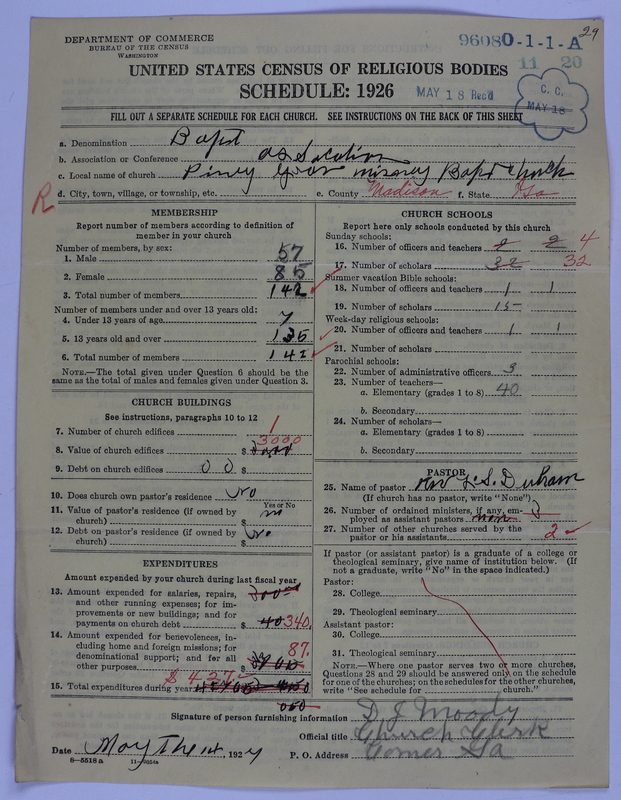 DEPARTMENT OF COMMERCE
BUREAU OF THE CENSUS
WASHINGTON
29
96080-1-1-A
11 20
UNITED STATES CENSUS OF RELIGIOUS BODIES
SCHEDULE: 1926
MAY 18 Rec'd
C. C.
MAY 18
FILL OUT A SEPARATE SCHEDULE FOR EACH CHURCH. SEE INSTRUCTIONS ON THE BACK OF THIS SHEET
a. Denomination Bapst
b. Association or Conference
c. Local name of church Piney Bapst Church
d. City, town, village, or township, etc. e. County Madison f. State Ga
R
MEMBERSHIP
Report number of members according to definition of
member in your church
Number of members, by sex:
1. Male 57
2. Female 85
3. Total number of members 142
Number of members under and over 13 years old:
4. Under 13 years of age 7
5. 13 years old and over 135
6. Total number of members 142
NOTE.—The total given under Question 6 should be
the same as the total of males and females given under Question 3.
CHURCH BUILDINGS
See instructions, paragraphs 10 to 12
7. Number of church edifices 1
3000
8. Value of church edifices $
9. Debt on church edifices 00 $
10. Does church own pastor's residence No
Yes or No
11. Value of pastor's residence (if owned by
church) $ no
12. Debt on pastor's residence (if owned by
church) $ No
EXPENDITURES
Amount expended by your church during last fiscal year
13. Amount expended for salaries, repairs,
and other running expenses; for im-
provements or new buildings; and for
payments on church debt $ 40 340.
14. Amount expended for benevolences, in-
cluding home and foreign missions; for
denominational support; and for all
other purposes $ 87.
$ 427
15. Total expenditures during year
CHURCH SCHOOLS
Report here only schools conducted by this church
Sunday schools:
16. Number of officers and teachers 2 2 4
17. Number of scholars 32 32
Summer vacation Bible schools:
18. Number of officers and teachers 1 1
19. Number of scholars 15
Week-day religious schools:
20. Number of officers and teachers 1 1
21. Number of scholars
Parochial schools:
22. Number of administrative officers 3
23. Number of teachers—
a. Elementary (grades 1 to 8) 40
b. Secondary
24. Number of scholars—
a. Elementary (grades 1 to 8)
b. Secondary
PASTOR
25. Name of pastor Rev L. S. Durham
(If church has no pastor, write "None")
26. Number of ordained ministers, if any, em-
ployed as assistant pastors non
27. Number of other churches served by the
pastor or his assistants 2
If pastor (or assistant pastor) is a graduate of a college or
theological seminary, give name of institution below. (If
not a graduate, write "No" in the space indicated.)
Pastor:
28. College
29. Theological seminary
Assistant pastor:
30. College
31. Theological seminary
NOTE.—Where one pastor serves two or more churches,
Questions 28 and 29 should be answered only on the schedule
for one of the churches; on the schedules for the other churches,
write "See schedule for church."
Signature of person furnishing information D J Moody
Official title Church Clerk
Date May The 14, 1927 P. O. Address Comer Ga
8—5518 a